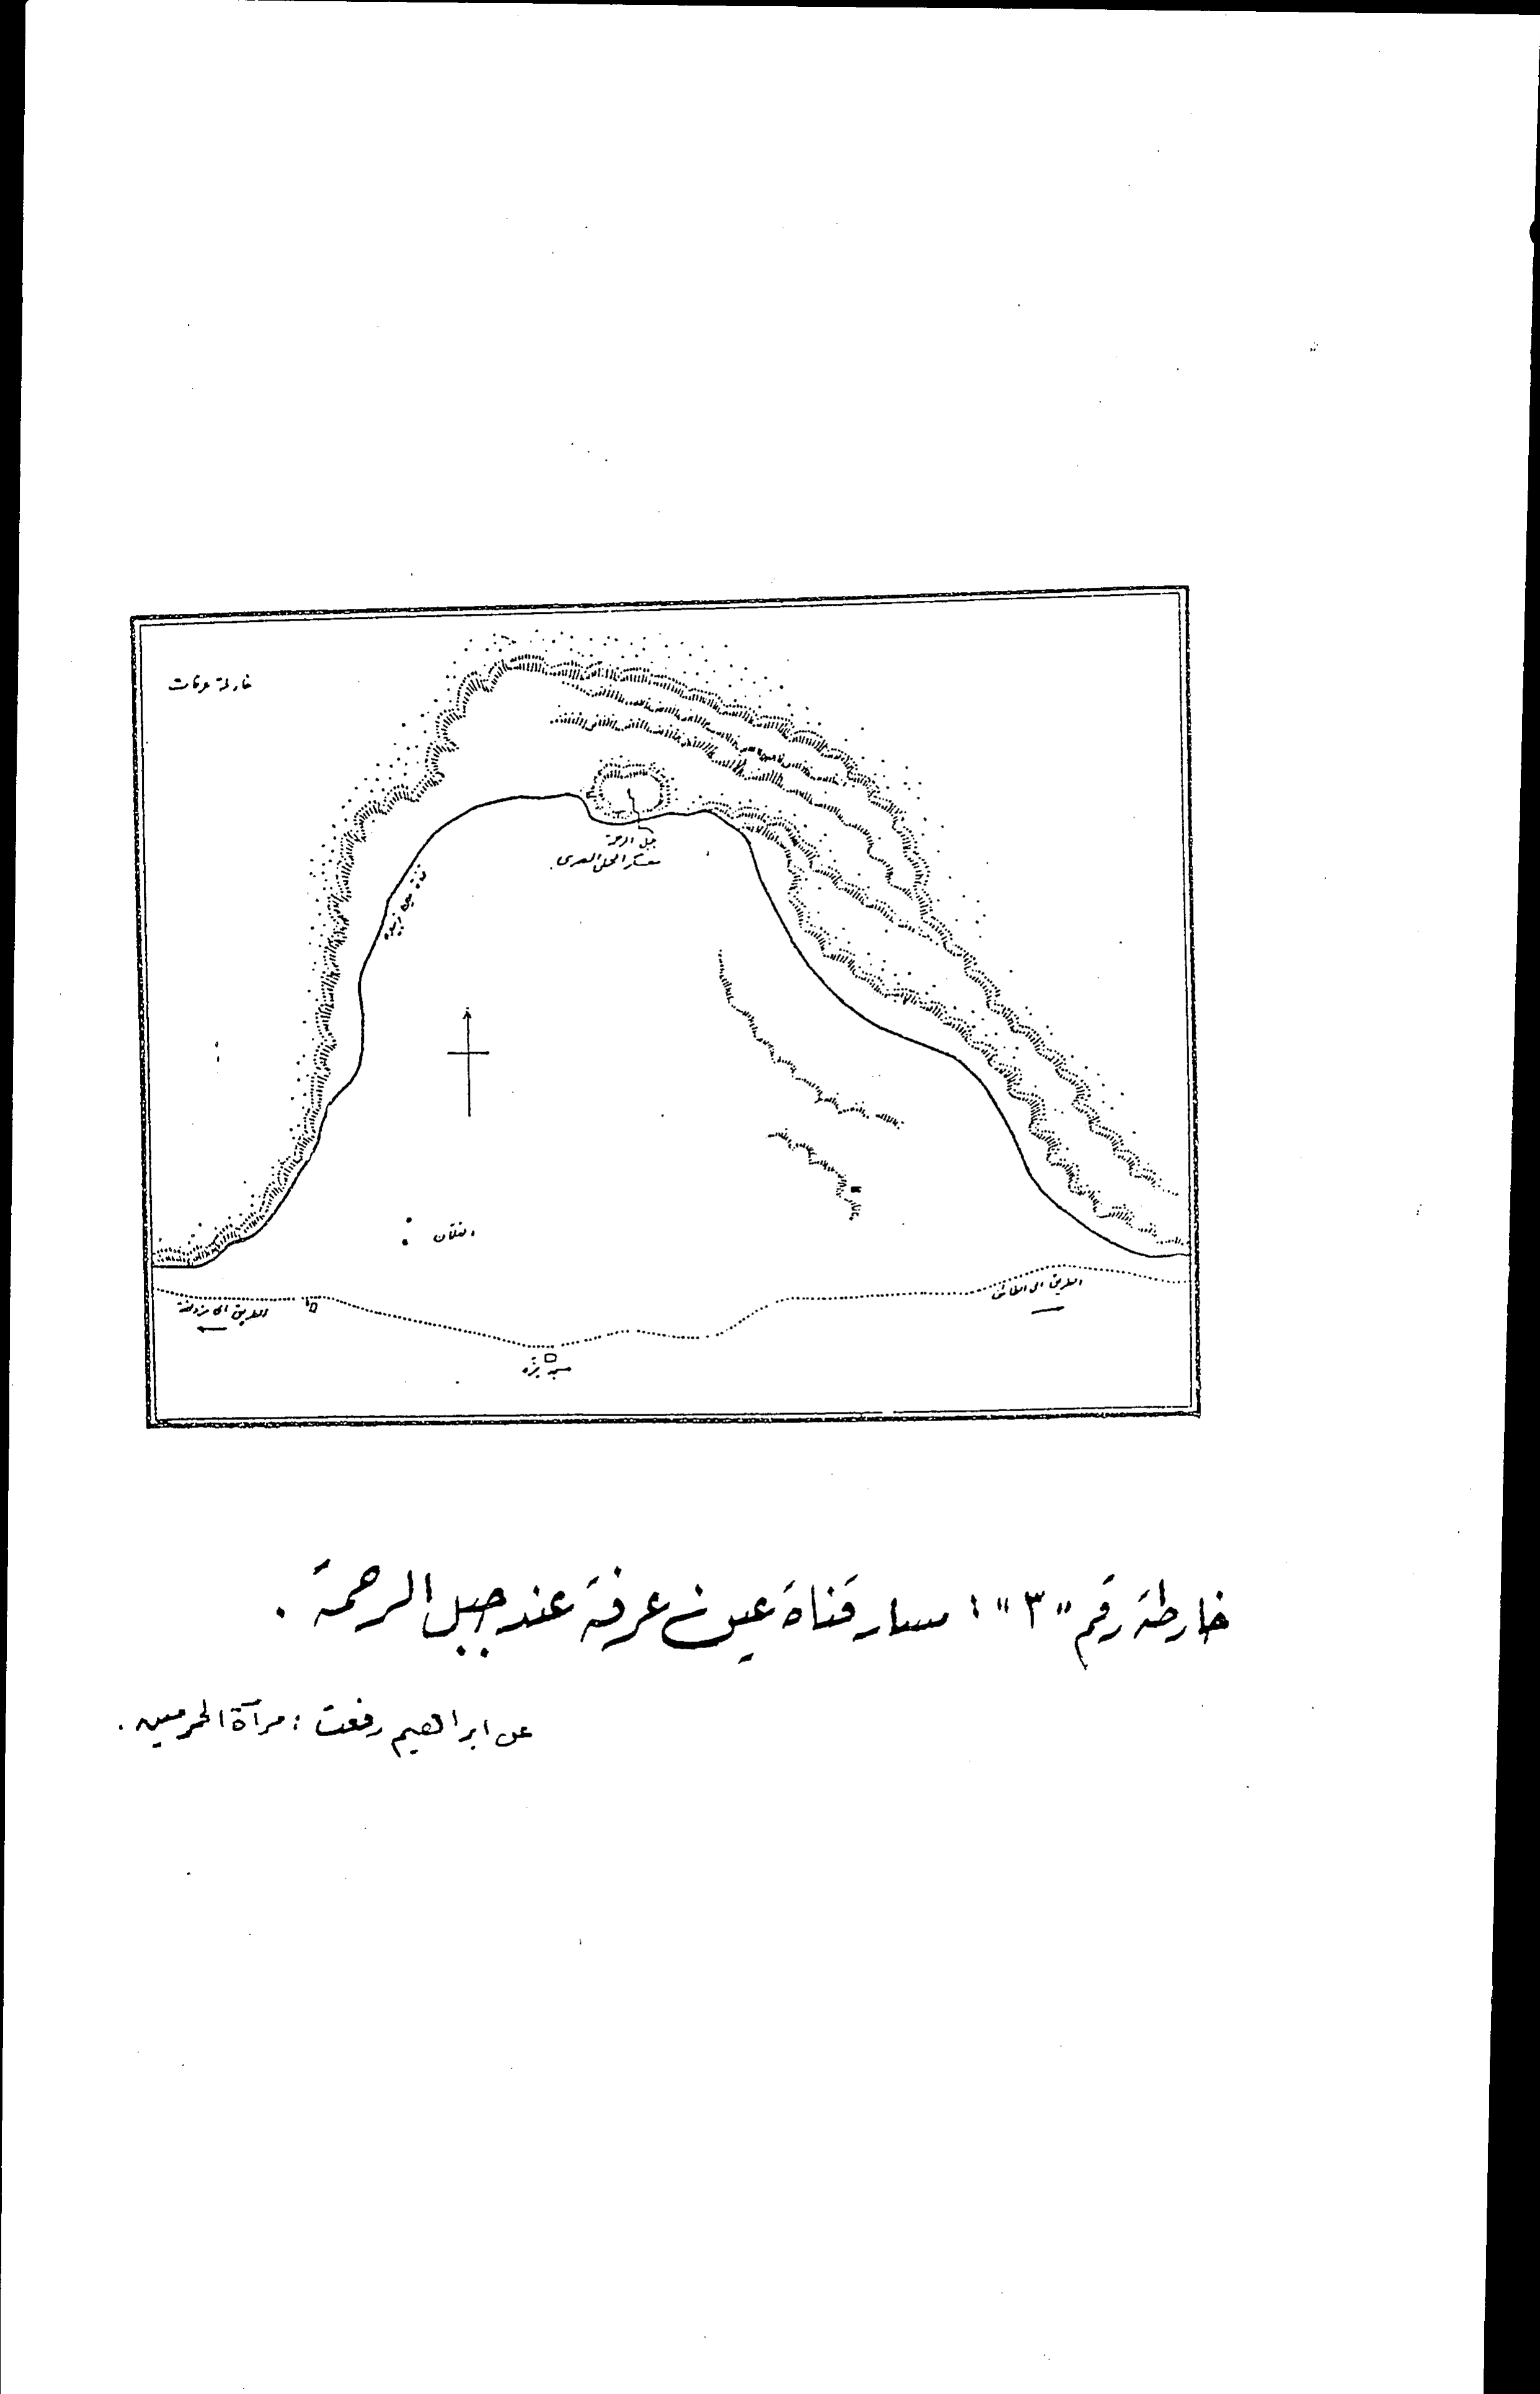 خارطة عرفات
جبل الرحمة
معسكر المحمل المصرى.
قناة عين زبيده
العلمان
الطريق الى الطائف
الطريق الى مزدلفة
مسجد نمره
خارطة رقم "٣" : مسار قناة عين عرفة عند جبل الرحمة .
عن ابراهيم رفعت : مرآة الحرمين .